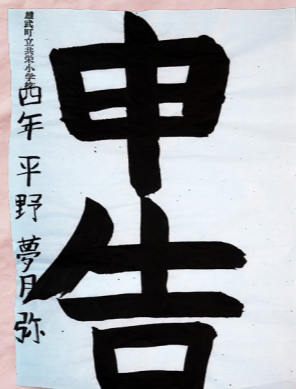 申告
雄武町立共栄小学校
四年 平野 夢月弥